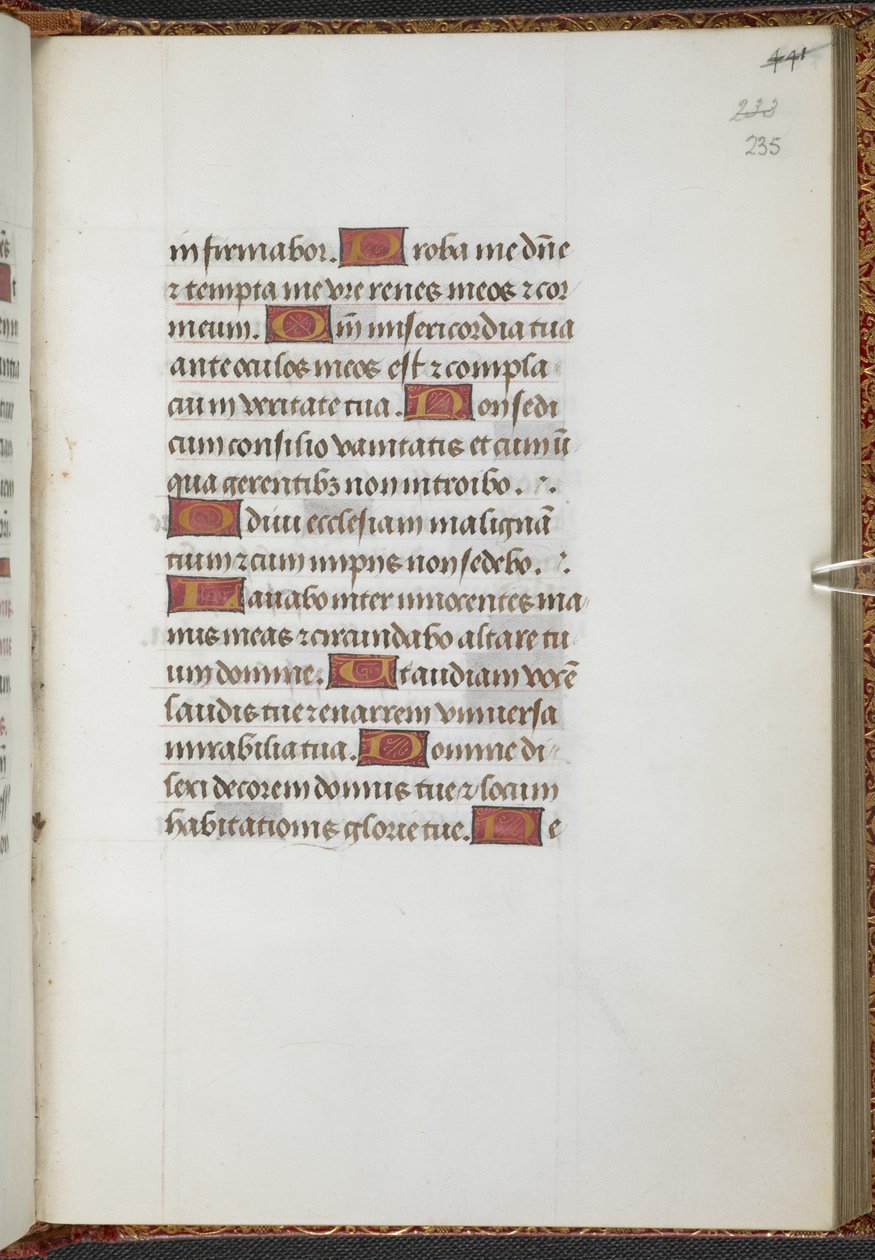 441
233
235
infirmabor. Proba me dn̄e
⁊ tempta me vre renes meos ⁊ cor
meum. Qm̄ misericordia tua
ante oculos meos est ⁊ compla
cui in veritate tua. Non sedi
cum consilio vanitatis et cum īi
qua gerentibꝫ non introibo.
Odiui ecclesiam malignā
tium ⁊ cum impijs non sedebo.
Lauabo inter innocentes ma
nus meas ⁊ circundabo altare tu
um domine. Ut audiam vocē
laudis tue ⁊ enarrem vniuersa
mirabilia tua. Domine di
lexi decorem domus tue ⁊ locum
habitationis glorie tue. Ne